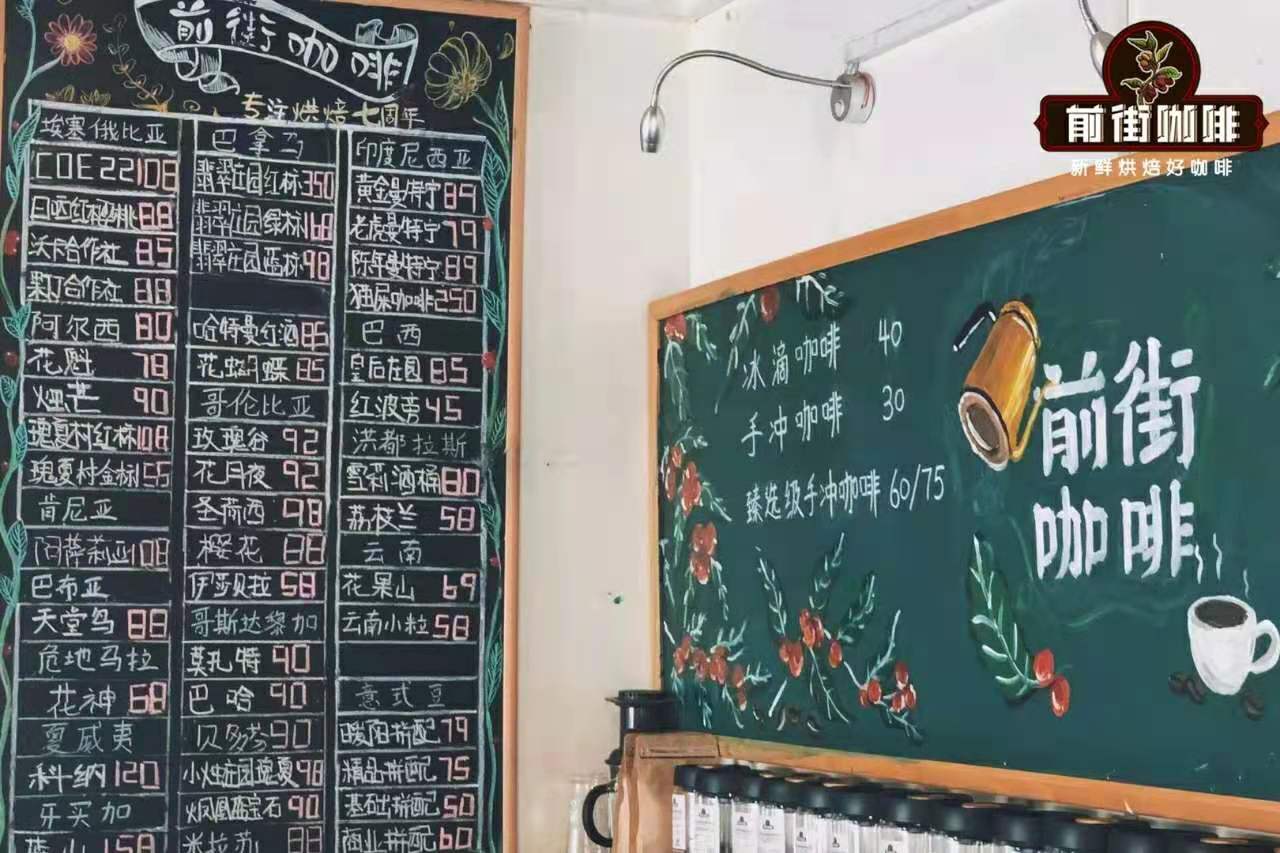 前街咖啡
专注烘焙七周年
埃塞俄比亚
COE22 108
日晒红樱桃 88
沃卡合作社 85
果丁合作社 88
阿尔西 80
花魁 78
烟芒 90
瑰夏村红标 108
瑰夏村金标
肯尼亚
阿萨莉亚 108
巴布亚
天堂鸟 88
危地马拉
花神 68
夏威夷
科纳 120
牙买加
蓝山 158
巴拿马
翡翠庄园红标 350
翡翠庄园绿标 168
翡翠庄园蓝标 98
哈特曼红酒 85
花蝴蝶 85
哥伦比亚
玫瑰谷 92
花月夜 92
圣荷西 98
樱花 88
伊莎贝拉 58
哥斯达黎加
莫扎特 90
巴哈 90
贝多芬 90
小烛庄园瑰夏 98
凤凰蓝宝石 90
米拉苏 88
印度尼西亚
黄金曼特宁 89
老虎曼特宁 79
陈年曼特宁 89
猫屎咖啡 250
巴西
皇后庄园 85
红波旁 45
洪都拉斯
雪莉酒桶 80
荔枝兰 58
云南
花果山 69
云南小粒 58
意式豆
暖阳拼配 79
精品拼配 75
基础拼配 50
商业拼配 60
冰滴咖啡 40
手冲咖啡 30
臻选级手冲咖啡 60/75
前街
咖啡
前街咖啡
新鲜烘焙好咖啡